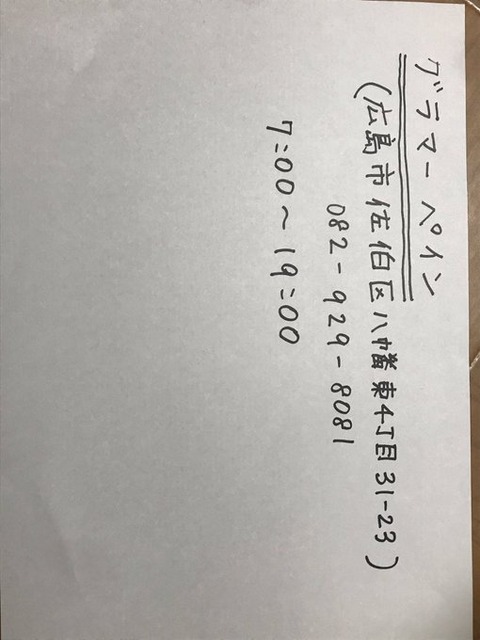 グラマーペイン
(広島市佐伯区八幡東4丁目31-23)
082-929-8081
7:00〜19:00